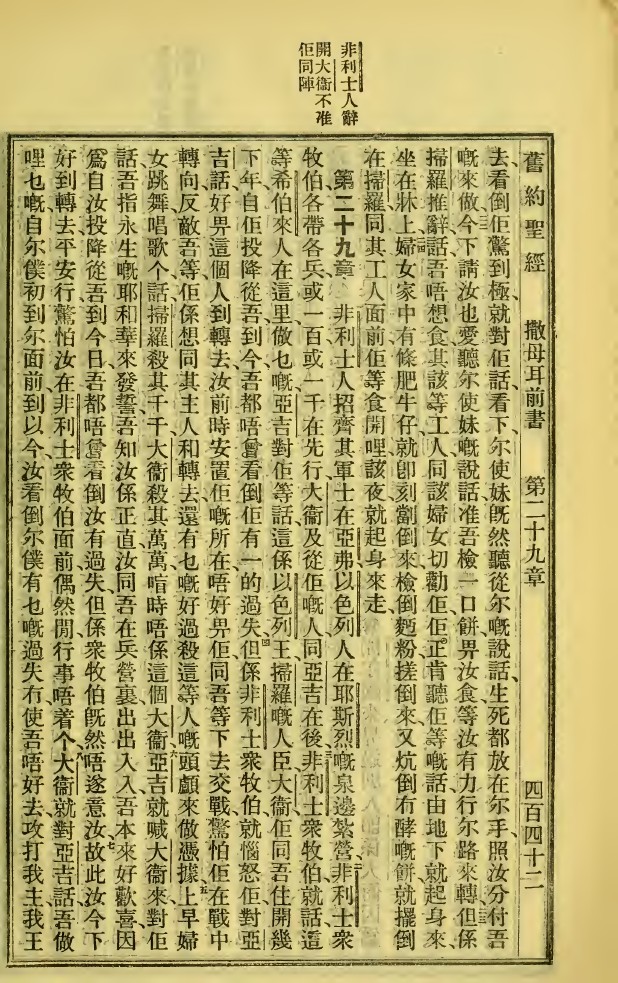 非利士人辭
開大衞不准
佢同陣
舊約聖經 撒母耳前書 第二十九章 四百四十二
去看倒佢驚到極就對佢話看下尔使妹旣然聽從尔嘅說話生死都放在尔手照汝分付吾
嘅來做今下請汝也愛聽尔使妹嘅說話准吾檢一口餅畀汝食等汝有力行尔路來轉但係
掃羅推辭話吾唔想食其該等工人同該婦女切勸佢佢正肯聽佢等嘅話由地下就起身來
坐在牀上婦女家中有條肥牛仔就卽刻劏倒來檢倒麪粉搓倒來又炕倒冇酵嘅餅就擺倒
在掃羅同其工人面前佢等食開哩該夜就起身來走
第二十九章 非利士人招齊其軍士在亞弗以色列人在耶斯烈嘅泉邊紮營非利士衆
牧伯各帶各兵或一百或一千在先行大衞及從佢嘅人同亞吉在後非利士衆牧伯就話這
等希伯來人在這里做乜嘅亞吉對佢等話這係以色列王掃羅嘅人臣大衞佢同吾住開幾
下年自佢投降從吾到今吾都唔曾看倒佢有一的過失但係非利士衆牧伯就惱怒佢對亞
吉話好畀這個人到轉去汝前時安置佢嘅所在唔好畀佢同吾等下去交戰驚怕佢在戰中
轉向反敵吾等佢係想同其主人和轉去還有乜嘅好過殺這等人嘅頭顱來做憑據上早婦
女跳舞唱歌个話掃羅殺其千千大衞殺其萬萬喑時唔係這個大衞亞吉就喊大衞來對佢
話吾指永生嘅耶和華來發誓吾知汝係正直汝同吾在兵營裏出出入入吾本來好歡喜因
爲自汝投降從吾到今日吾都唔曾看倒汝有過失但係衆牧伯旣然唔遂意汝故此汝今下
好到轉去平安行驚怕汝在非利士衆牧伯面前偶然閒行事唔着个大衞就對亞吉話吾做
哩乜嘅自尔僕初到尔面前到以今汝看倒尔僕有乜嘅過失冇使吾唔好去攻打我主我王